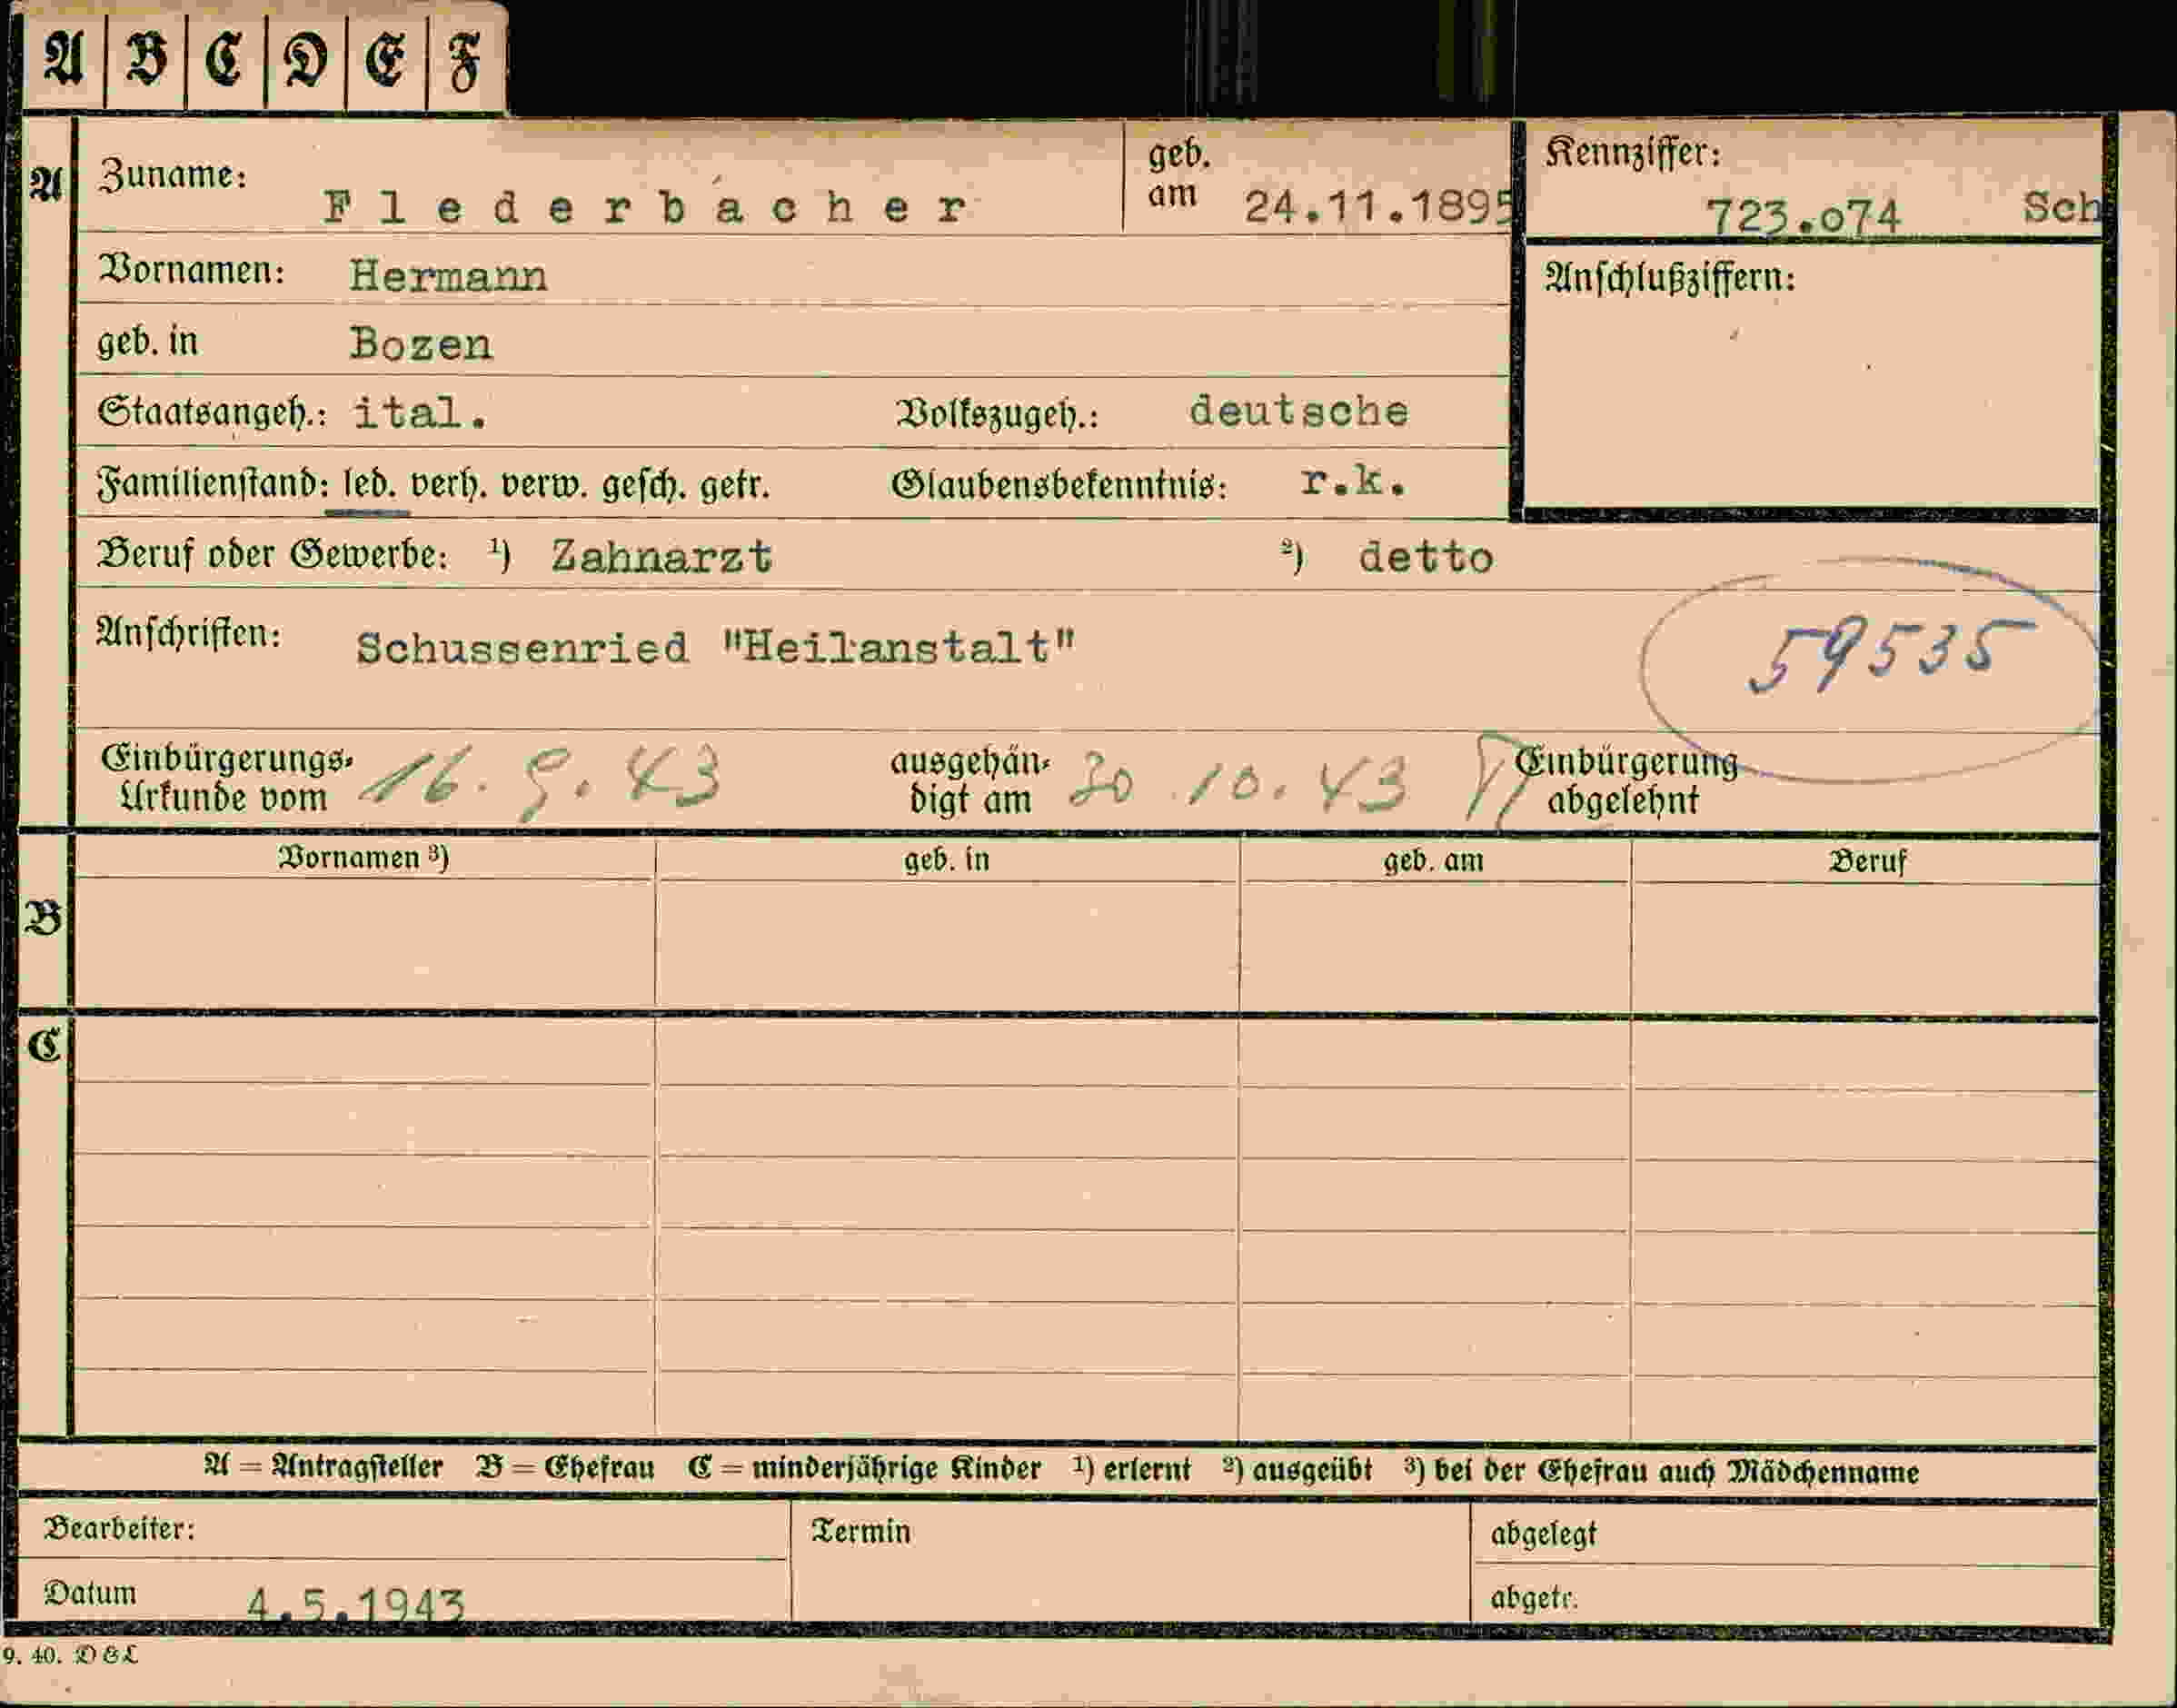 A B C D E F
A Zuname: Flederbacher geb. am 24.11.1895 Kennziffer: 723.o74 Sch
Vornamen: Hermann Anschlußziffern:
geb. in Bozen
Staatsangeh.: ital. Volkszugeh.: deutsche
Familienstand: led. verh. verw. gesch. getr. Glaubensbekenntnis: r.k.
Beruf oder Gewerbe: ¹) Zahnarzt ²) detto
Anschriften: Schussenried "Heilanstalt" 59535
Einbürgerungs-Urkunde vom 16.9.43 ausgehändigt am 30.10.43 Einbürgerung abgelehnt
Vornamen ³) geb. in geb. am Beruf
B
C
A = Antragsteller B = Ehefrau C = minderjährige Kinder ¹) erlernt ²) ausgeübt ³) bei der Ehefrau auch Mädchenname
Bearbeiter: Termin abgelegt
Datum 4.5.1943 abgetr.
9. 40. D&L